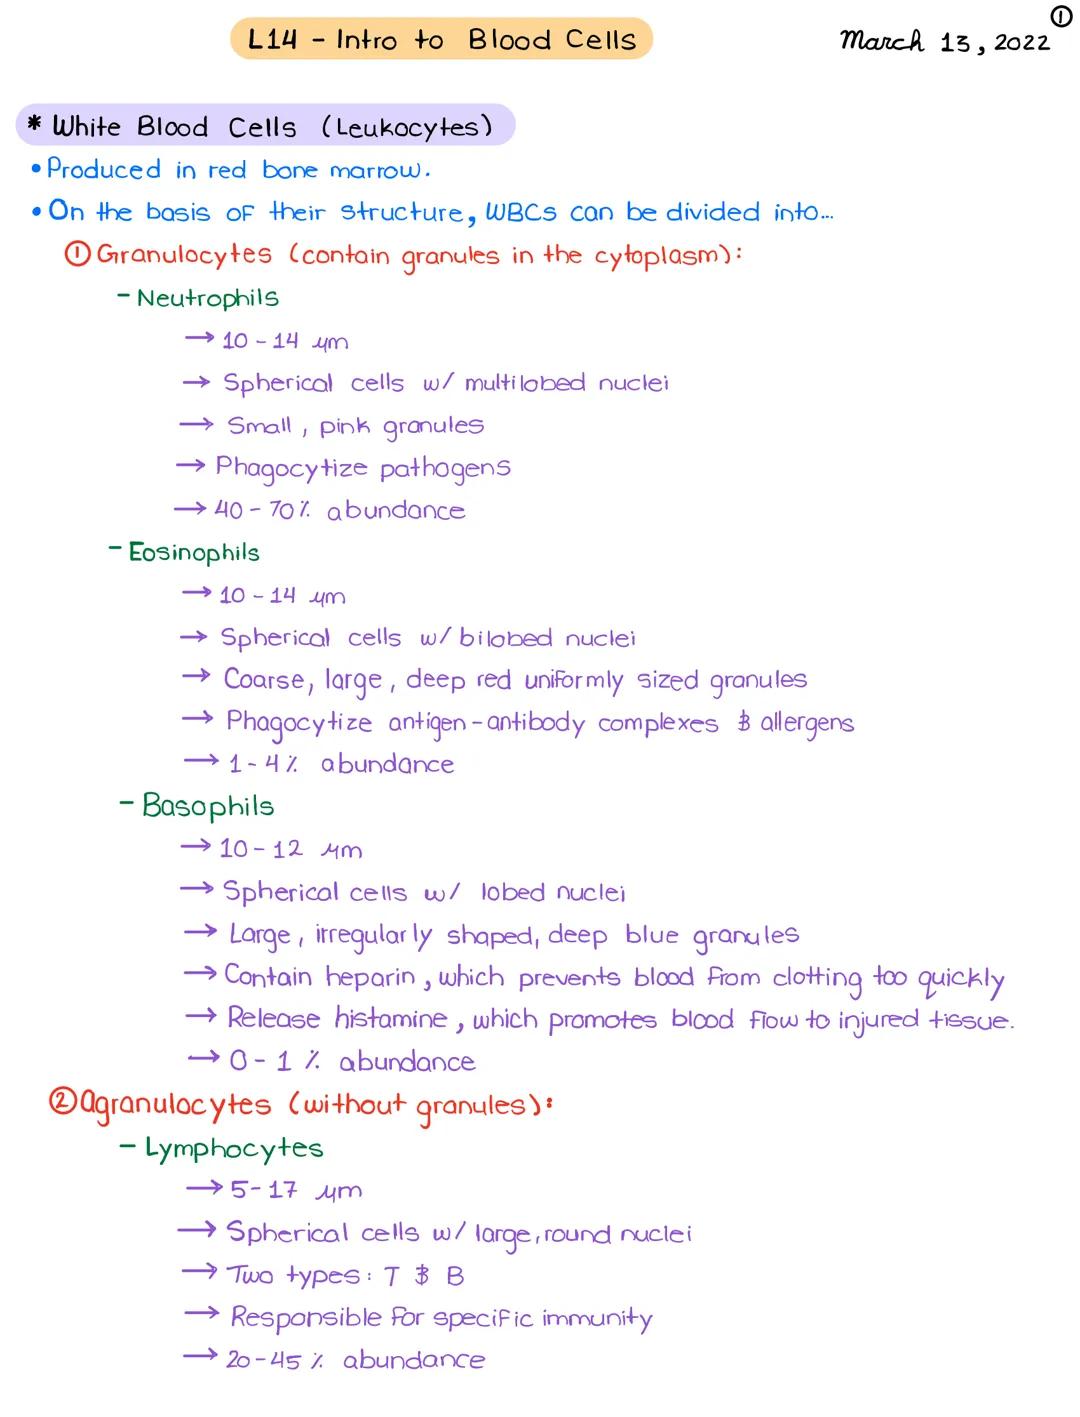 ①
L14 - Intro to Blood Cells
March 13, 2022
* White Blood Cells (Leukocytes)
• Produced in red bone marrow.
• On the basis of their structure, WBCs can be divided into...
① Granulocytes (contain granules in the cytoplasm):
- Neutrophils
→ 10 - 14 μm
→ Spherical cells w/ multilobed nuclei
→ Small, pink granules
→ Phagocytize pathogens
→ 40 - 70% abundance
- Eosinophils
→ 10 - 14 μm
→ Spherical cells w/ bilobed nuclei
→ Coarse, large, deep red uniformly sized granules
→ Phagocytize antigen-antibody complexes & allergens
→ 1 - 4% abundance
- Basophils
→ 10 - 12 μm
→ Spherical cells w/ lobed nuclei
→ Large, irregularly shaped, deep blue granules
→ Contain heparin, which prevents blood from clotting too quickly
→ Release histamine, which promotes blood flow to injured tissue.
→ 0 - 1% abundance
② Agranulocytes (without granules):
- Lymphocytes
→ 5 - 17 μm
→ Spherical cells w/ large, round nuclei
→ Two types: T & B
→ Responsible for specific immunity
→ 20 - 45% abundance